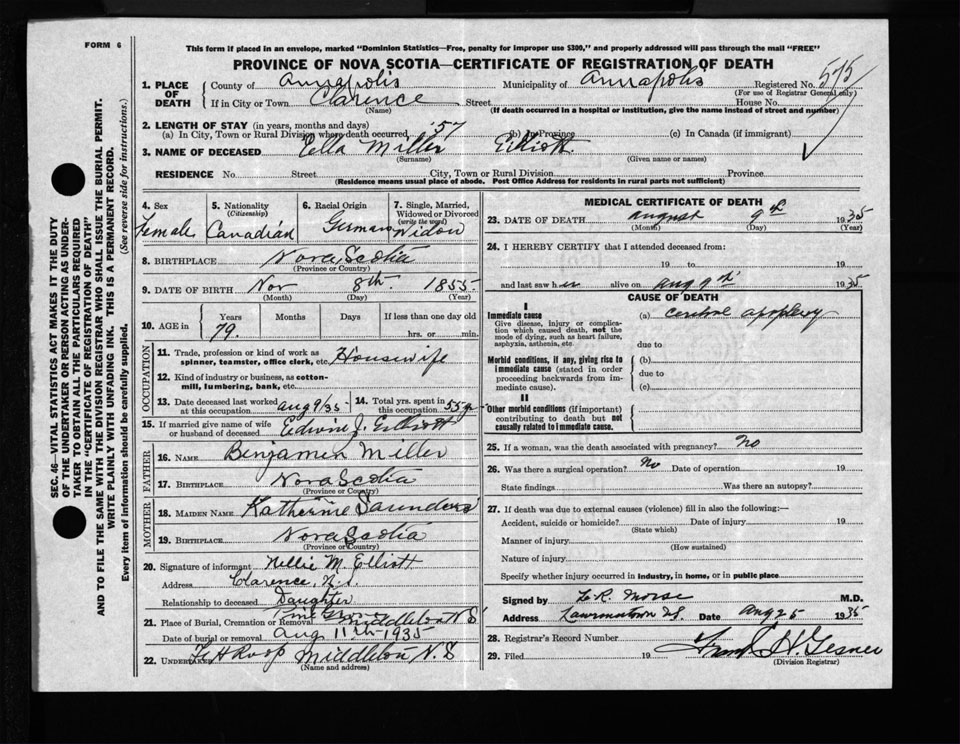 FORM 6
This form if placed in an envelope, marked "Dominion Statistics—Free, penalty for improper use $300," and properly addressed will pass through the mail "FREE"
PROVINCE OF NOVA SCOTIA—CERTIFICATE OF REGISTRATION OF DEATH
1. PLACE OF DEATH
County of Annapolis Municipality of Annapolis Registered No. 575
(For use of Registrar General only)
If in City or Town Clarence Street House No.
(Name) (If death occurred in a hospital or institution, give the name instead of street and number)
2. LENGTH OF STAY (in years, months and days)
(a) In City, Town or Rural Division where death occurred '57 (b) In Province (c) In Canada (if immigrant)
3. NAME OF DECEASED Ella Miller Elliott
(Surname) (Given name or names)
RESIDENCE No. Street City, Town or Rural Division Province
(Residence means usual place of abode. Post Office Address for residents in rural parts not sufficient)
SEC. 46—VITAL STATISTICS ACT MAKES IT THE DUTY
OF THE UNDERTAKER OR PERSON ACTING AS UNDER-
TAKER TO OBTAIN ALL THE PARTICULARS REQUIRED
IN THE "CERTIFICATE OF REGISTRATION OF DEATH"
AND TO FILE THE SAME WITH THE DIVISION REGISTRAR WHO SHALL ISSUE THE BURIAL PERMIT.
WRITE PLAINLY WITH UNFADING INK. THIS IS A PERMANENT RECORD.
Every item of information should be carefully supplied. (See reverse side for instructions.)
4. Sex
Female
5. Nationality
(Citizenship)
Canadian
6. Racial Origin
German
7. Single, Married,
Widowed or Divorced
(write the word)
Widow
8. BIRTHPLACE Nova Scotia
(Province or Country)
9. DATE OF BIRTH Nov 8th. 1855
(Month) (Day) (Year)
10. AGE in
Years Months Days If less than one day old
79. hrs. or min.
OCCUPATION
11. Trade, profession or kind of work as
spinner, teamster, office clerk, etc. Housewife
12. Kind of industry or business, as cotton-
mill, lumbering, bank, etc.
13. Date deceased last worked
at this occupation Aug 9/35
14. Total yrs. spent in
this occupation 55
15. If married give name of wife
or husband of deceased Edwin J. Elliott
FATHER
16. NAME Benjamin Miller
17. BIRTHPLACE Nova Scotia
(Province or Country)
MOTHER
18. MAIDEN NAME Katherine Saunders
19. BIRTHPLACE Nova Scotia
(Province or Country)
20. Signature of informant Nellie M. Elliott
Address Clarence, N.S.
Relationship to deceased Daughter
21. Place of Burial, Cremation or Removal Middleton N S
Date of burial or removal Aug 11th 1935
22. UNDERTAKER Roop Middleton N.S
(Name and address)
MEDICAL CERTIFICATE OF DEATH
23. DATE OF DEATH August 9th 1935
(Month) (Day) (Year)
24. I HEREBY CERTIFY that I attended deceased from:
19 to 19
and last saw her alive on Aug 9th 1935
CAUSE OF DEATH
I
Immediate cause
Give disease, injury or complica-
tion which caused death, not the
mode of dying, such as heart failure,
asphyxia, asthenia, etc.
(a) cerebral apoplexy
due to
Morbid conditions, if any, giving rise to
immediate cause (stated in order
proceeding backwards from im-
mediate cause).
(b)
due to
(c)
II
Other morbid conditions (if important)
contributing to death but not
causally related to immediate cause.
25. If a woman, was the death associated with pregnancy? No
26. Was there a surgical operation? No Date of operation 19
State findings Was there an autopsy?
27. If death was due to external causes (violence) fill in also the following:—
Accident, suicide or homicide? Date of injury 19
(State which)
Manner of injury
(How sustained)
Nature of injury
Specify whether injury occurred in industry, in home, or in public place
Signed by Morse M.D.
Address Lawrencetown N.S. Date Aug 25 1935
28. Registrar's Record Number
29. Filed 19 Frank W. Gesner
(Division Registrar)